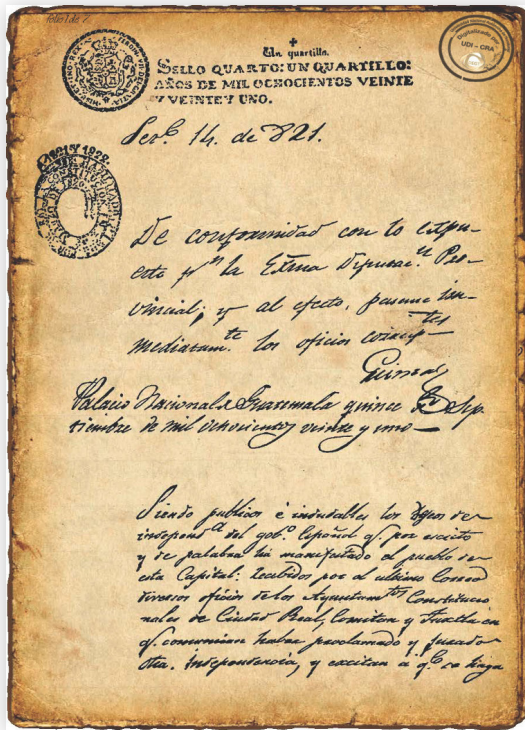 Un quartillo.
SELLO QUARTO: UN QUARTILLO:
AÑOS DE MIL OCHOCIENTOS VEINTE
Y VEINTE Y UNO.
Digitalizado por
UDI - CRA
Sepe. 14. de 821.
De conformidad con lo expu-
esto pr. la Exma Diputacn. Pro-
vincial; y al efecto, pasense in-
mediatamte. los oficios
Palacio Nacional de Guatemala quince de Sep-
tiembre de mil ochocientos veinte y uno
Siendo publicos é indudables los deseos de
independa. del gobo. Español qe. por escrito
y de palabra ha manifestado el pueblo de
esta Capital: Recibidos por el ultimo Correo
diversos oficios de los Ayuntamtos. Constitucio
nales de Ciudad Real, Comitan y Tuxtla en
qe. comunican haber proclamado y jurado
dha. independencia, y excitan á qe. se haga